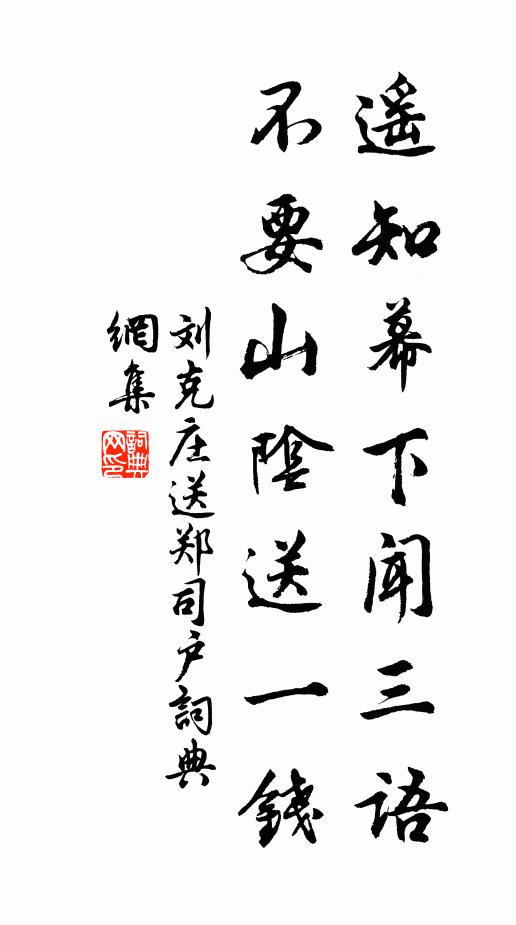 遥知幕下闻三語
不要山陰送一錢
刘克庄送郑司户詞典
網集
詞典
网印